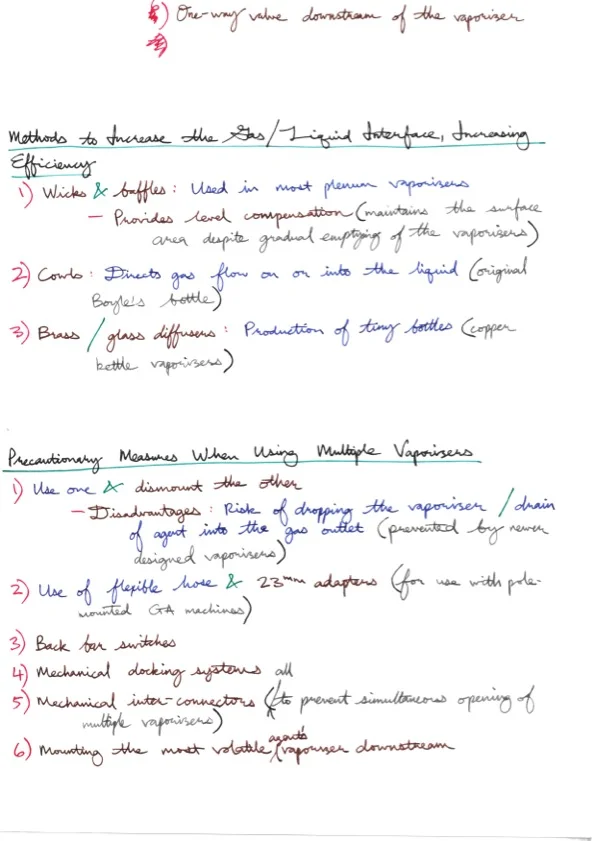 8) One-way valve downstream of the vaporiser
Methods to Increase the Gas/Liquid Interface, Increasing
Efficiency
1) Wicks & baffles: Used in most plenum vaporisers
— Provides level compensation (maintains the surface
area despite gradual emptying of the vaporisers)
2) Cowls: Directs gas flow on or into the liquid (original
Boyle's bottle)
3) Brass / glass diffusers: Production of tiny bottles (copper
kettle vaporisers)
Precautionary Measures When Using Multiple Vaporisers
1) Use one & dismount the other
— Disadvantages: Risk of dropping the vaporiser / drain
of agent into the gas outlet (prevented by newer
designed vaporisers)
2) Use of flexible hose & 23mm adapters (for use with pole-
mounted GA machines)
3) Back bar switches
4) Mechanical docking systems all
5) Mechanical inter-connectors (to prevent simultaneous opening of
multiple vaporisers)
6) Mounting the most volatile agent's vaporiser downstream